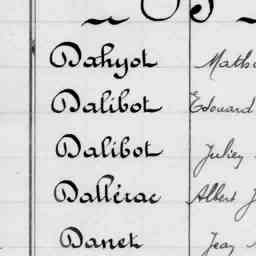 Dahyot Math
Dalibot Edouard
Dalibot Julien
Dallérac Albert J
Danet Jean